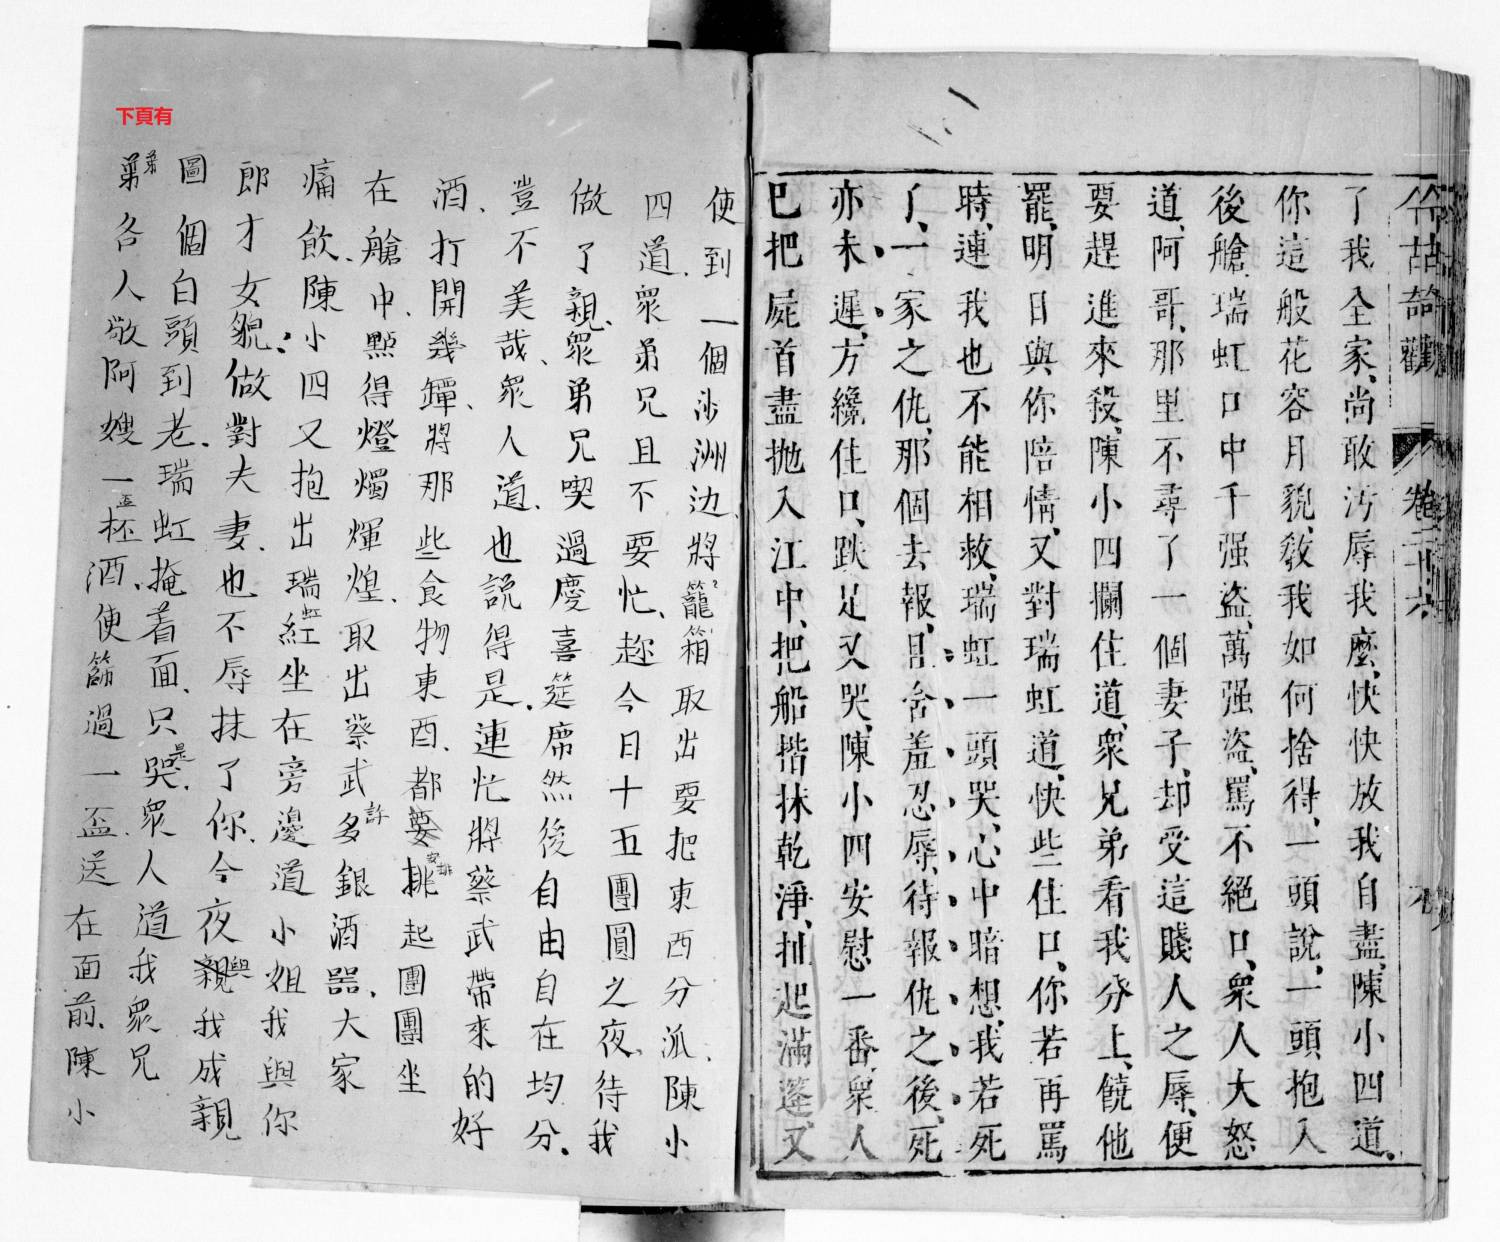 今古奇觀
卷二十六
了我全家、尚敢汚辱我麼、快快放我自盡、陳小四道、
你這般花容月貌、教我如何捨得、一頭說、一頭抱入
後艙、瑞虹口中千强盗、萬强盗、罵不絕口、衆人大怒
道、阿哥、那里不尋了一個妻子、却受這賤人之辱、便
要趕進來殺、陳小四攔住道、衆兄弟看我分上、饒他
罷、明日與你陪情、又對瑞虹道、快些住口、你若再罵
時、連我也不能相救、瑞虹一頭哭、心中暗想、我若死
了、一家之仇、那個去報、且舍羞忍辱、待報仇之後、死
亦未遲、方纔住口、跌足又哭、陳小四安慰一番、衆人
巴把屍首盡抛入江中、把船揩抹乾淨、扯起滿蓬、又
使到一個沙洲边、將籠箱取出要把東西分派、陳小
四道、衆弟兄且不要忙、趂今日十五團圓之夜、待我
做了親、衆弟兄喫過慶喜筵席然後自由自在均分、
豈不美哉、衆人道、也説得是、連忙將蔡武帶來的好
酒、打開幾罈、將那些食物東西、都要安排起團團坐
在艙中、點得燈燭輝煌、取出蔡武許多銀酒器、大家
痛飲、陳小四又抱出瑞虹坐在旁邊道小姐我與你
郎才女貌、做對夫妻、也不辱抹了你、今夜與我成親
圖個白頭到老、瑞虹掩着面、只是哭、衆人道我衆兄
弟各人敬阿嫂一盃酒、便篩過一盃送在面前、陳小
下頁有